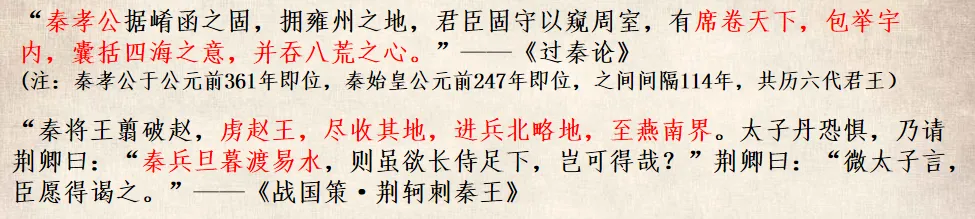 “秦孝公据崤函之固，拥雍州之地，君臣固守以窥周室，有席卷天下，包举宇
内，囊括四海之意，并吞八荒之心。”——《过秦论》
(注：秦孝公于公元前361年即位，秦始皇公元前247年即位，之间间隔114年，共历六代君王）
“秦将王翦破赵，虏赵王，尽收其地，进兵北略地，至燕南界。太子丹恐惧，乃请
荆卿曰：“秦兵旦暮渡易水，则虽欲长侍足下，岂可得哉？”荆卿曰：“微太子言，
臣愿得谒之。”——《战国策·荆轲刺秦王》